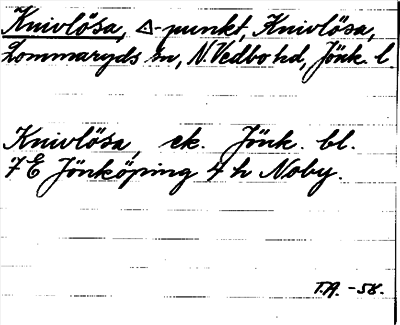 Knivlösa, △-punkt, Knivlösa,
Lommaryds sn, N.Vedbo hd, Jönk. l.
Knivlösa, ek. Jönk. bl.
7 E Jönköping 4 h Noby.
T.A. -58.